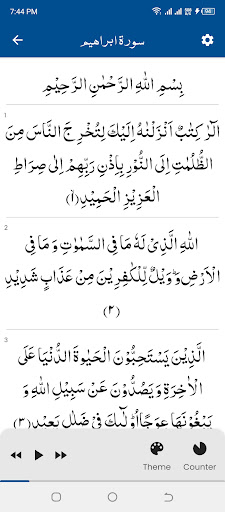 7:44 PM
سورة ابراهيم
بِسْمِ اللهِ الرَّحْمٰنِ الرَّحِيْمِ
1
الٓرٰ كِتٰبٌ اَنْزَلْنٰهُ اِلَيْكَ لِتُخْرِجَ النَّاسَ مِنَ
الظُّلُمٰتِ اِلَى النُّوْرِ بِاِذْنِ رَبِّهِمْ اِلٰى صِرَاطِ
الْعَزِيْزِ الْحَمِيْدِ(۱)
2
اللهِ الَّذِيْ لَهٗ مَا فِي السَّمٰوٰتِ وَ مَا فِي
الْاَرْضِ وَ وَيْلٌ لِّلْكٰفِرِيْنَ مِنْ عَذَابٍ شَدِيْدٍ
(۲)
3
الَّذِيْنَ يَسْتَحِبُّوْنَ الْحَيٰوةَ الدُّنْيَا عَلَى
الْاٰخِرَةِ وَ يَصُدُّوْنَ عَنْ سَبِيْلِ اللهِ وَ
يَبْغُوْنَهَا عِوَجًا اُولٰٓىِٕكَ فِيْ ضَلٰلٍ بَعِيْدٍ(۳)
Theme Counter